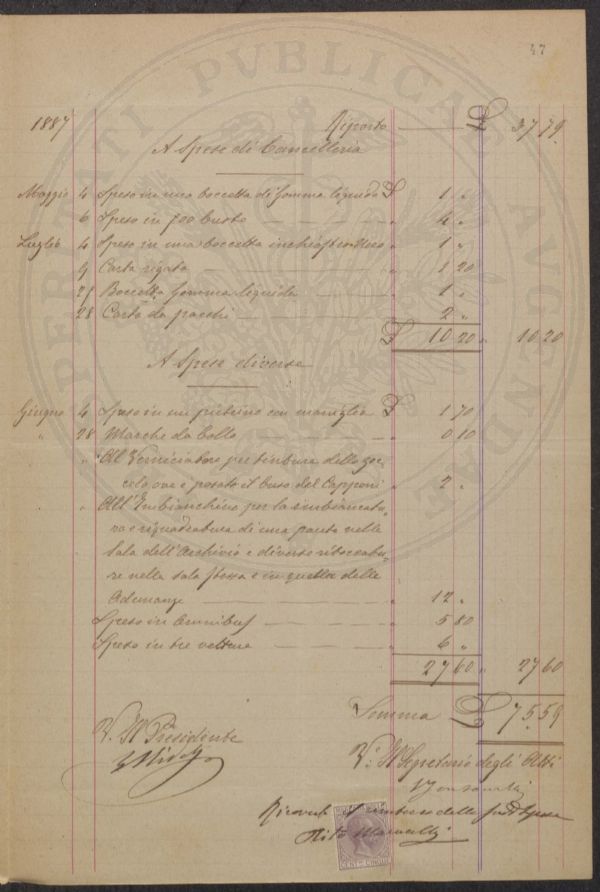 47
PROSPERITATI PVBLICAE AVGENDAE
1887 Riporto £ 37 79
A Spese di Cancelleria
Maggio 4 Speso in una boccetta di Gomma liquida £ 1 "
6 Speso in 700 buste " 4 "
Luglio 4 Speso in una boccetta inchiostro nero " 1 "
9 Carta rigata " 1 20
21 Boccetta Gomma liquida " 1 "
28 Carta da pacchi " 2 "
£ 10 20 " 10 20
A Spese diverse
Giugno 4 Speso in un pietrino con maniglia £ 1 70
" 28 Marche da bollo " 0 10
" Al Verniciatore per tintura dello zoc-
colo ove è posato il busto del Capponi " 2 "
" All'Imbianchino per la imbiancatu-
ra e riquadratura di una parete nella
Sala dell'Archivio e diverse ritoccatu-
re nella sala stessa e in quella delle
Adunanze " 12 "
Speso in Omnibus " 5 80
Speso in tre vetture " 6 "
27 60 " 27 60
Somma £ 75.59
V. Il Presidente
V. Il Segretario degli Atti
Ricevuto il rimborso delle sudd. Spese
CENT. CINQUE